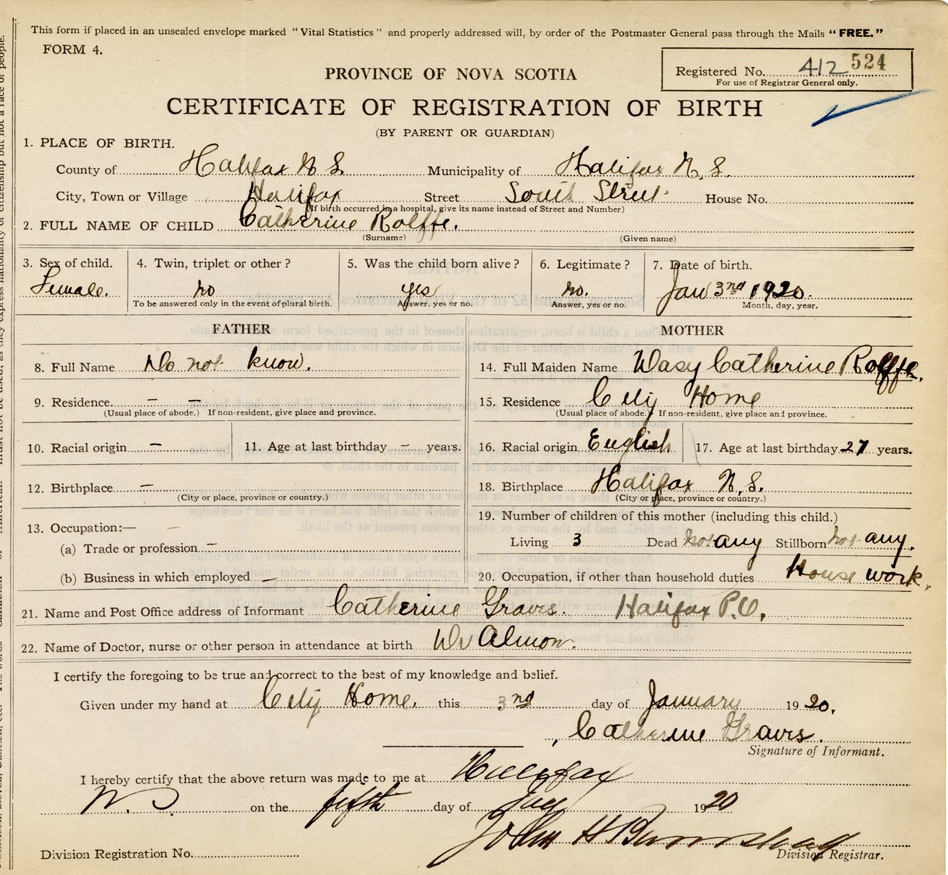 This form if placed in an unsealed envelope marked "Vital Statistics" and properly addressed will, by order of the Postmaster General pass through the Mails "FREE."
FORM 4.
PROVINCE OF NOVA SCOTIA
Registered No. 412 524
For use of Registrar General only.
CERTIFICATE OF REGISTRATION OF BIRTH
(BY PARENT OR GUARDIAN)
1. PLACE OF BIRTH.
County of Halifax N.S. Municipality of Halifax N.S.
City, Town or Village Halifax Street South Street House No.
(If birth occurred in a hospital, give its name instead of Street and Number)
2. FULL NAME OF CHILD Catherine Rolffe.
(Surname) (Given name)
3. Sex of child. 4. Twin, triplet or other? 5. Was the child born alive? 6. Legitimate? 7. Date of birth.
Female. no yes no. Jan 3rd 1920.
To be answered only in the event of plural birth. Answer, yes or no. Answer, yes or no. Month, day, year.
FATHER MOTHER
8. Full Name Do not know. 14. Full Maiden Name Catherine Rolffe.
9. Residence. — — 15. Residence City Home
(Usual place of abode.) If non-resident, give place and province. (Usual place of abode.) If non-resident, give place and province.
10. Racial origin — 11. Age at last birthday — years. 16. Racial origin English 17. Age at last birthday 27 years.
12. Birthplace — 18. Birthplace Halifax N.S.
(City or place, province or country.) (City or place, province or country.)
13. Occupation:— — 19. Number of children of this mother (including this child.)
(a) Trade or profession — Living 3 Dead not any Stillborn not any.
(b) Business in which employed — 20. Occupation, if other than household duties House work.
21. Name and Post Office address of Informant Catherine Graves. Halifax P.O.
22. Name of Doctor, nurse or other person in attendance at birth Dr Almon.
I certify the foregoing to be true and correct to the best of my knowledge and belief.
Given under my hand at City Home. this 3rd day of January 1920.
Catherine Graves.
Signature of Informant.
I hereby certify that the above return was made to me at Halifax
N.S. on the fifth day of 1920
John H
Division Registration No. Division Registrar.